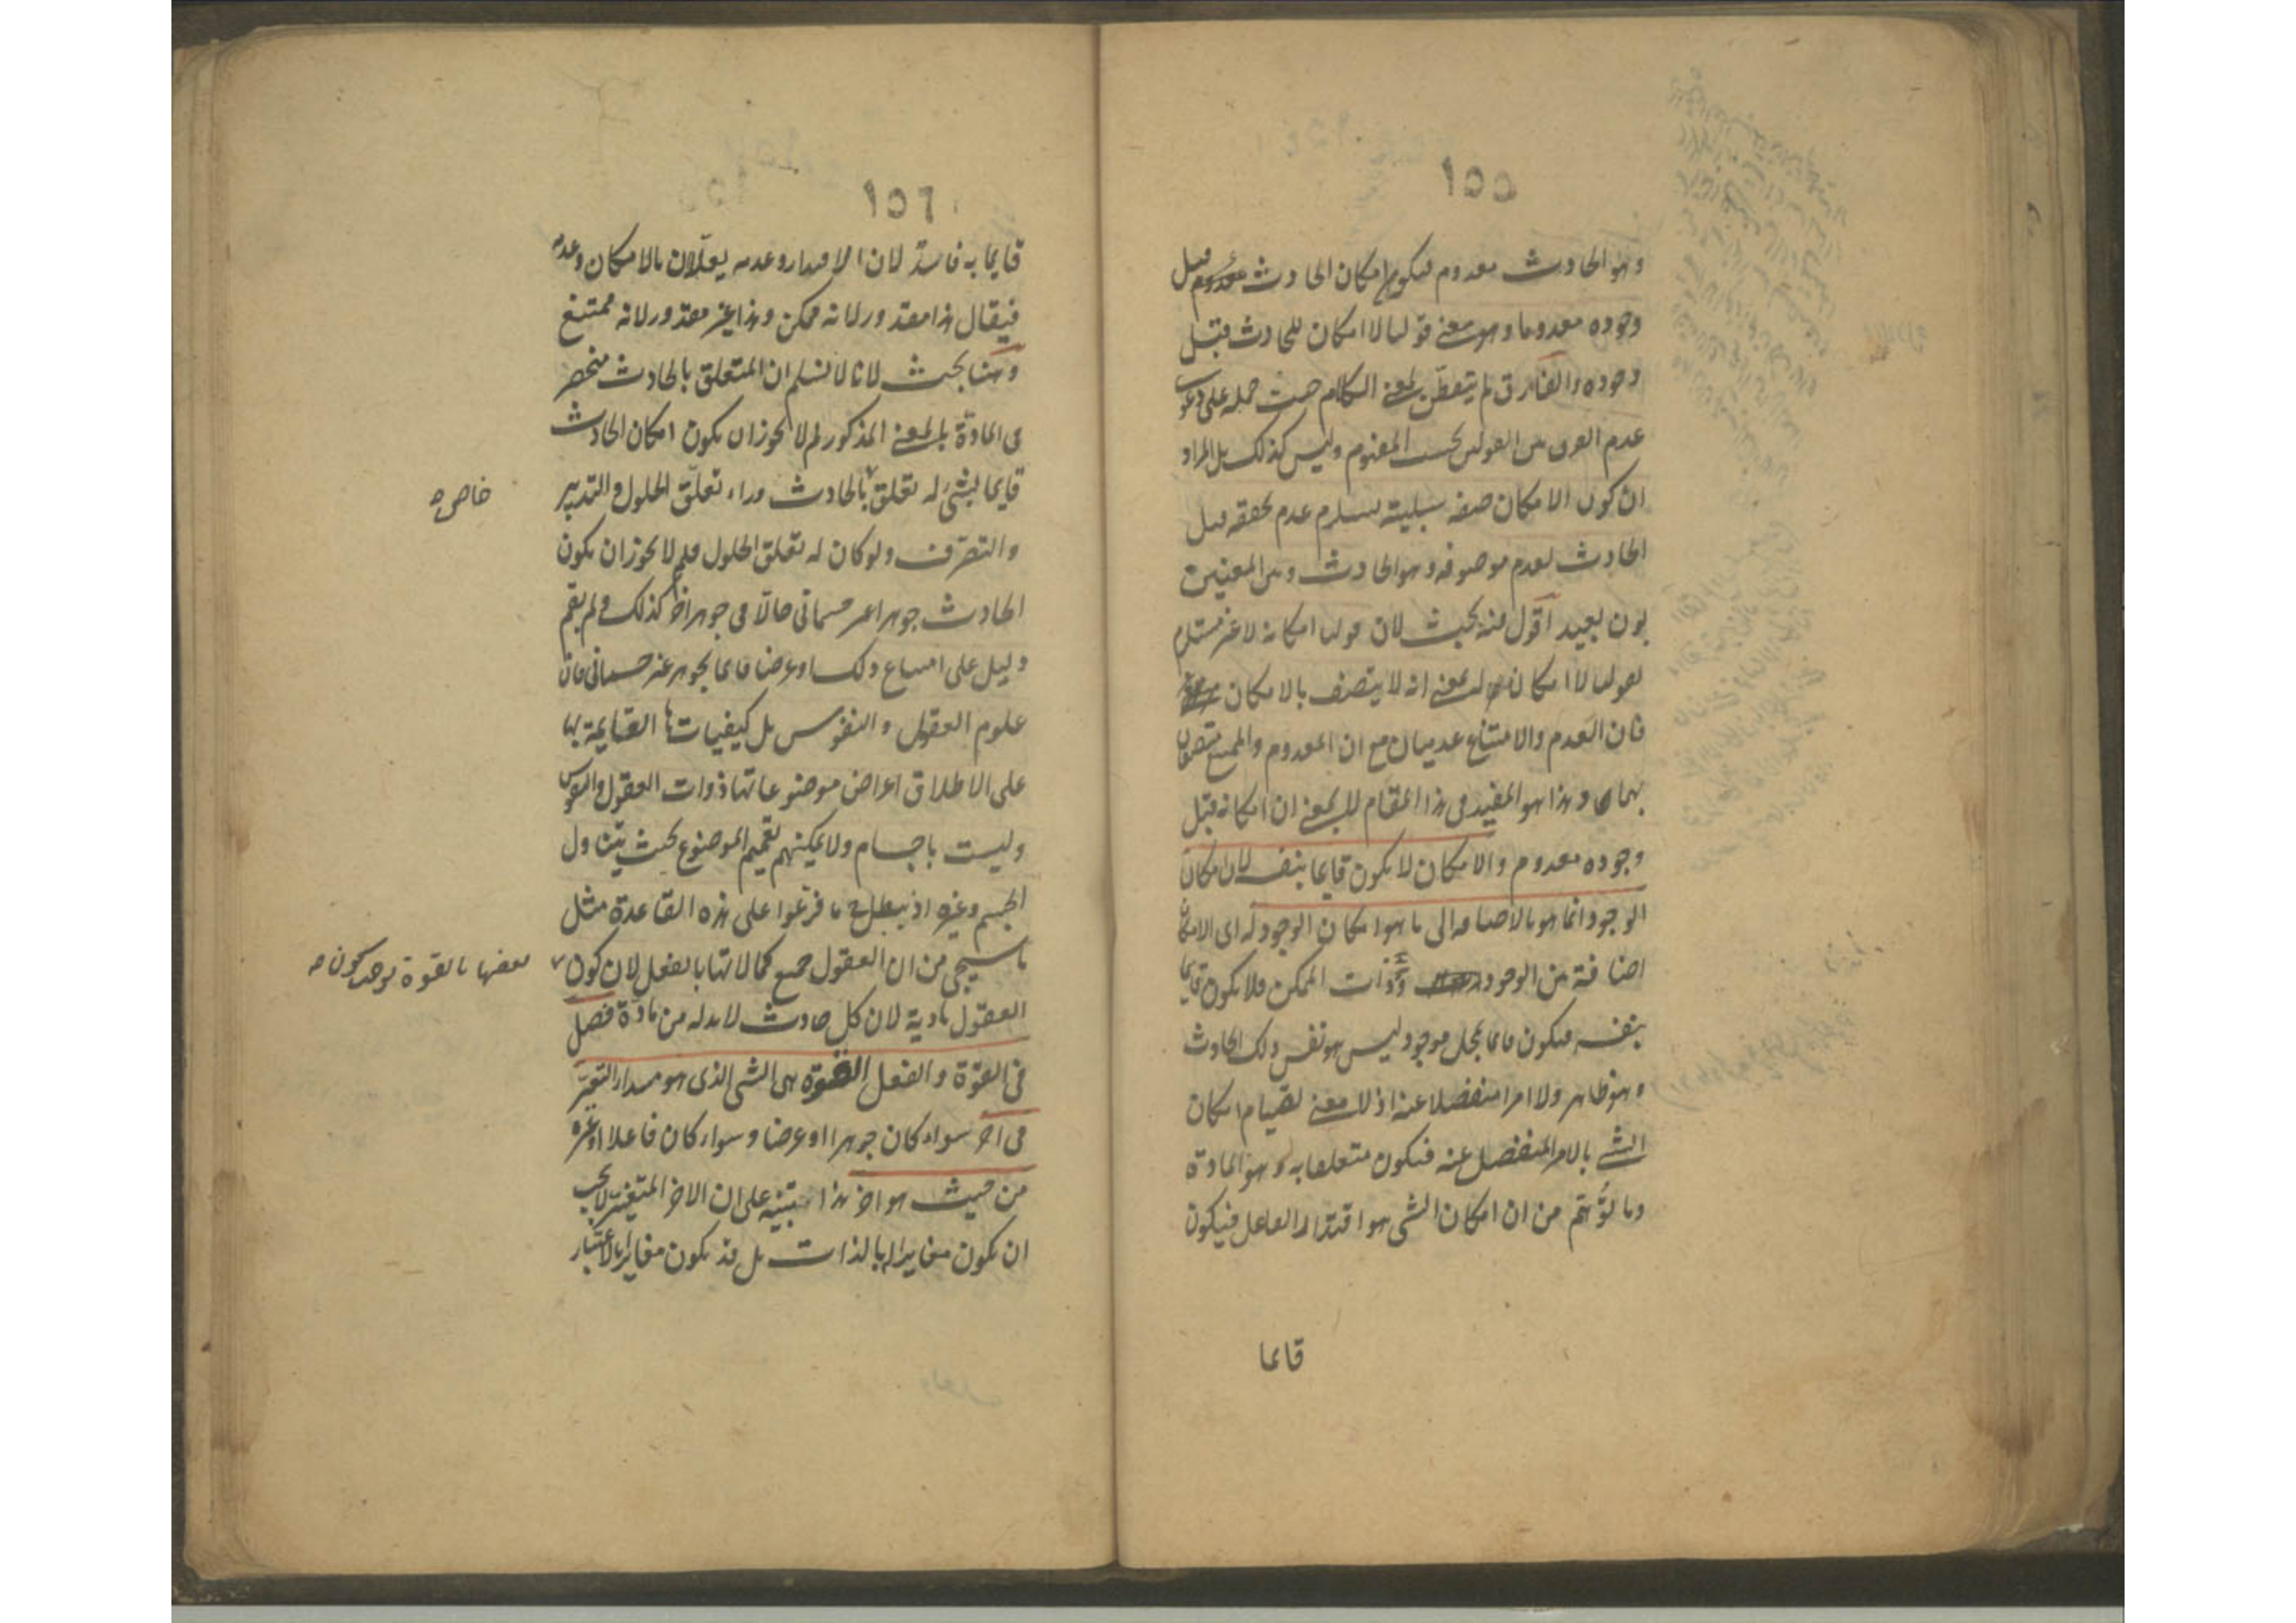 ١٥٥
وهو الحادث معدوم فيكون امكان الحادث قبل
وجوده معدوما وهو معنى قولنا لا امكان للحادث قبل
وجوده والفارق لم يتفطن لمعنى الكلام حيث حمله على دعوى
عدم الفرق بين القولين بحسب المفهوم وليس كذلك بل المراد
ان كون الامكان صفة سلبية يستلزم عدم تحققه قبل
الحادث لعدم موصوفه وهو الحادث وبين المعنيين
بون بعيد اقول فيه بحث لان قولنا امكانه لا غير مستلزم
لقولنا لا امكان له بمعنى انه لا يتصف بالامكان
فان العدم والامتناع عدميان مع ان المعدوم والممتنع متصفان
بهما وهذا هو المفيد فى هذا المقام لا بمعنى ان امكانه قبل
وجوده معدوم والامكان لا يكون قايما بنفسه لان امكان
الوجود انما هو بالاضافة الى ما هو امكان الوجود له اى الامكان
اضافة بين الوجود وذات الممكن فلا يكون قايما
بنفسه فيكون قايما بمحل موجود ليس هو نفس ذلك الحادث
وهو ظاهر ولا امرا منفصلا عنه اذ لا معنى لقيام امكان
الشئ بالامر المنفصل عنه فيكون متعلقا به وهو المادة
وما توهم من ان امكان الشى هو اقتدار الفاعل فيكون
قايما
١٥٦
قايما به فاسد لان الاقتدار وعدمه يعللان بالامكان وعدمه
فيقال هذا مقدور لانه ممكن وهذا غير مقدور لانه ممتنع
وههنا بحث لانا لا نسلم ان المتعلق بالحادث منحصر
فى المادة بالمعنى المذكور لم لا يجوز ان يكون امكان الحادث
قايما بشئ له تعلق بالحادث وراء تعلق الحلول والتدبير
خاص صح
والتصرف ولو كان له تعلق الحلول فلم لا يجوز ان يكون
الحادث جوهرا غير جسمانى حالا فى جوهر اخر كذلك ولم يقم
دليل على امتناع ذلك او عرضا قايما بجوهر غير جسمانى فان
علوم العقول والنفوس بل كيفياتها القايمة بها
على الاطلاق اعراض موضوعاتها ذوات العقول والنفوس
وليست باجسام ولا يمكنهم تعميم الموضوع بحيث يتناول
الجسم وغيره اذ يبطل ح ما فرعوا على هذه القاعدة مثل
ما سيجى من ان العقول جميع كمالاتها بالفعل لان كون
بعضها بالقوة يوجب كون صح
العقول مادية لان كل حادث لا بد له من مادة فصل
فى القوة والفعل القوة هى الشى الذى هو مبدا التغير
فى اخر سواء كان جوهرا او عرضا وسواء كان فاعلا او غيره
من حيث هو اخر هذا تنبيه على ان الاخر المتغير لا يجب
ان يكون مغايرا له بالذات بل قد يكون مغايرا بالاعتبار